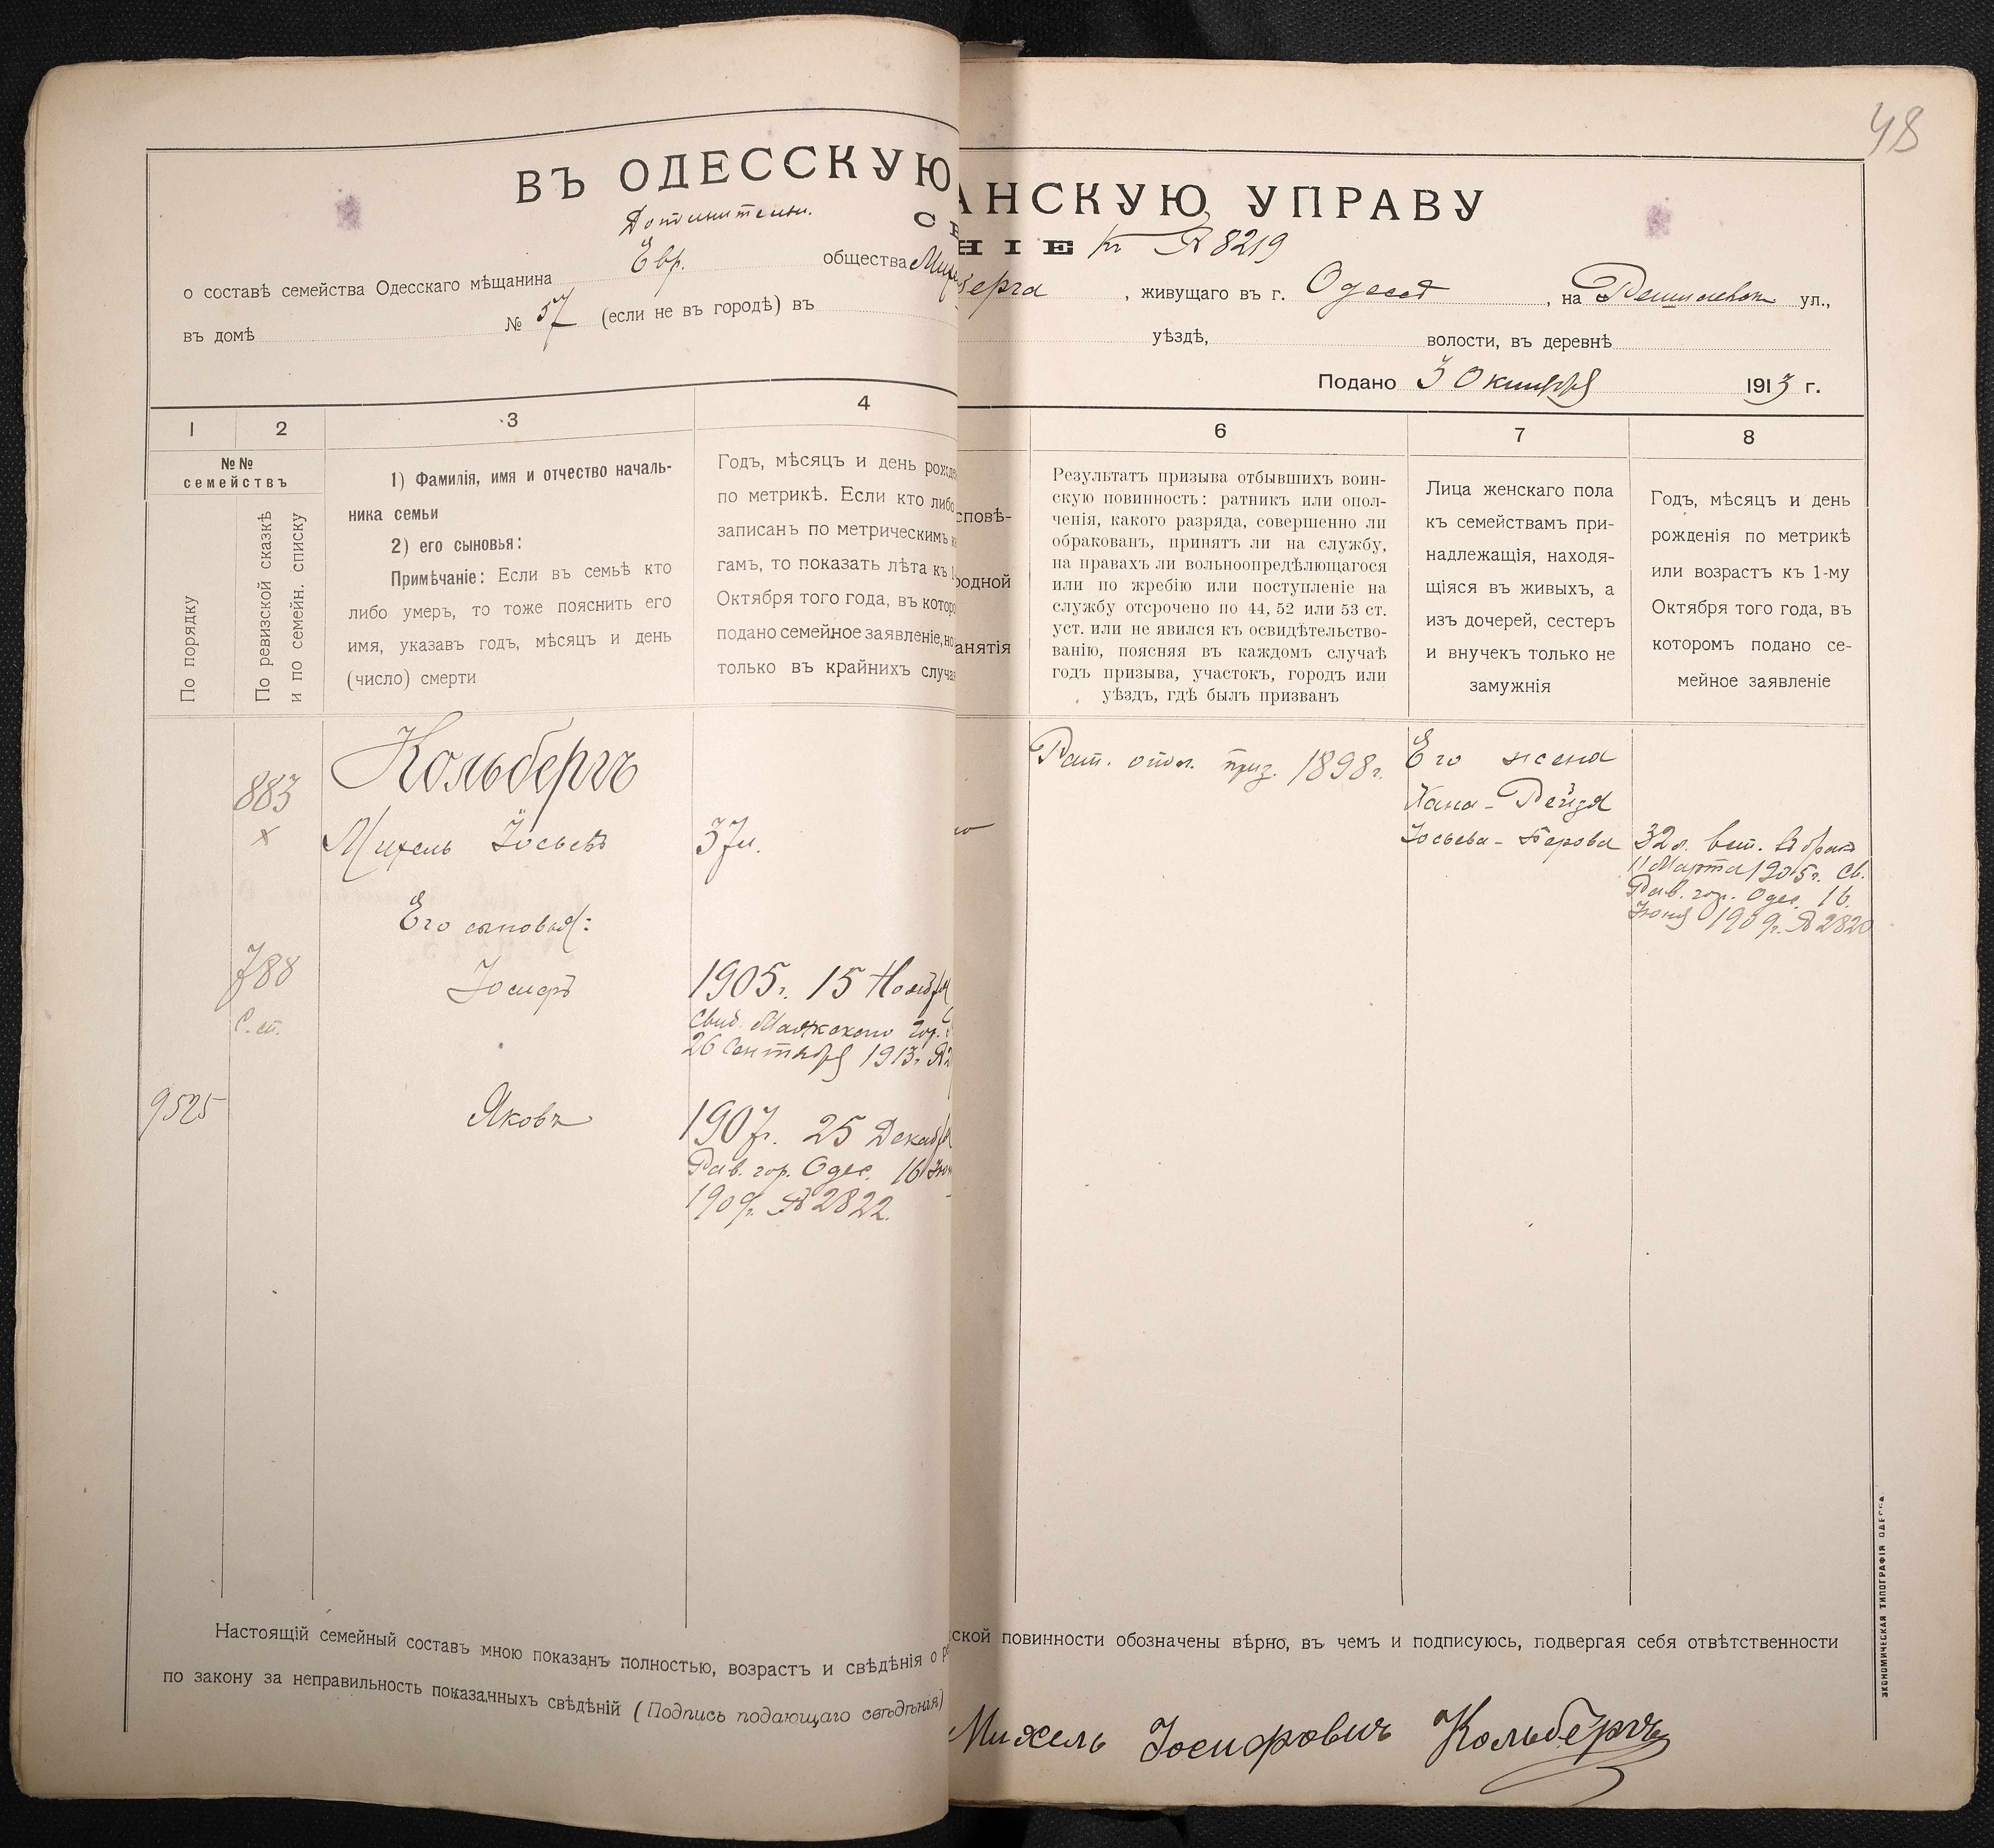 48
ВЪ ОДЕССКУЮ АНСКУЮ УПРАВУ
Дополнительн.
НІЕ къ № 8219
о составѣ семейства Одесскаго мѣщанина Евр. общества берга, живущаго въ г. Одессѣ, на Ришельевск ул.,
въ домѣ № 57 (если не въ городѣ) въ уѣздѣ, волости, въ деревнѣ
Подано 3 Октября 1913 г.
1 2 3 4 6 7 8
№№ семействъ
По порядку
По ревизской сказкѣ
и по семейн. списку
1) Фамилія, имя и отчество началь-
ника семьи
2) его сыновья:
Примѣчаніе: Если въ семьѣ кто
либо умеръ, то тоже пояснить его
имя, указавъ годъ, мѣсяцъ и день
(число) смерти
Годъ, мѣсяцъ и день рожд
по метрикѣ. Если кто либо
записанъ по метрическимъ
гамъ, то показать лѣта къ
Октября того года, въ котор
подано семейное заявленіе, но
только въ крайнихъ случа
сповѣ-
родной
анятія
Результатъ призыва отбывшихъ воин-
скую повинность: ратникъ или опол-
ченія, какого разряда, совершенно ли
обракованъ, принятъ ли на службу,
на правахъ ли вольноопредѣляющагося
или по жребію или поступленіе на
службу отсрочено по 44, 52 или 53 ст.
уст. или не явился къ освидѣтельство-
ванію, поясняя въ каждомъ случаѣ
годъ призыва, участокъ, городъ или
уѣздъ, гдѣ былъ призванъ
Лица женскаго пола
къ семействамъ при-
надлежащія, находя-
щіяся въ живыхъ, а
изъ дочерей, сестеръ
и внучекъ только не
замужнія
Годъ, мѣсяцъ и день
рожденія по метрикѣ
или возрастъ къ 1-му
Октября того года, въ
которомъ подано се-
мейное заявленіе
883
х
Кольбергъ
Михель Іосьевъ
37 л.
Рат. опол. приз. 1898 г.
Его жена
Хана-Рейзя
Іосьева-Берова
32 л. вст. въ бракъ
11 Марта 1905 г. Св.
Рав. гор. Одес. 16
Іюня 1909 г. № 2820
Его сыновья:
788
С. сп.
Іосифъ
1905 г. 15 Ноября
Свид. Маякскаго гор.
26 Сентября 1913 г. №
9525
Яковъ
1907 г. 25 Декабря
Рав. гор. Одес. 16 Іюн
1909 г. № 2822.
Настоящій семейный составъ мною показанъ полностью, возрастъ и свѣдѣнія о ской повинности обозначены вѣрно, въ чемъ и подписуюсь, подвергая себя отвѣтственности
по закону за неправильность показанныхъ свѣдѣній (Подпись подающаго свѣдѣнія)
Михель Іосифовичъ Кольбергъ
ЭКОНОМИЧЕСКАЯ ТИПОГРАФІЯ ОДЕССА